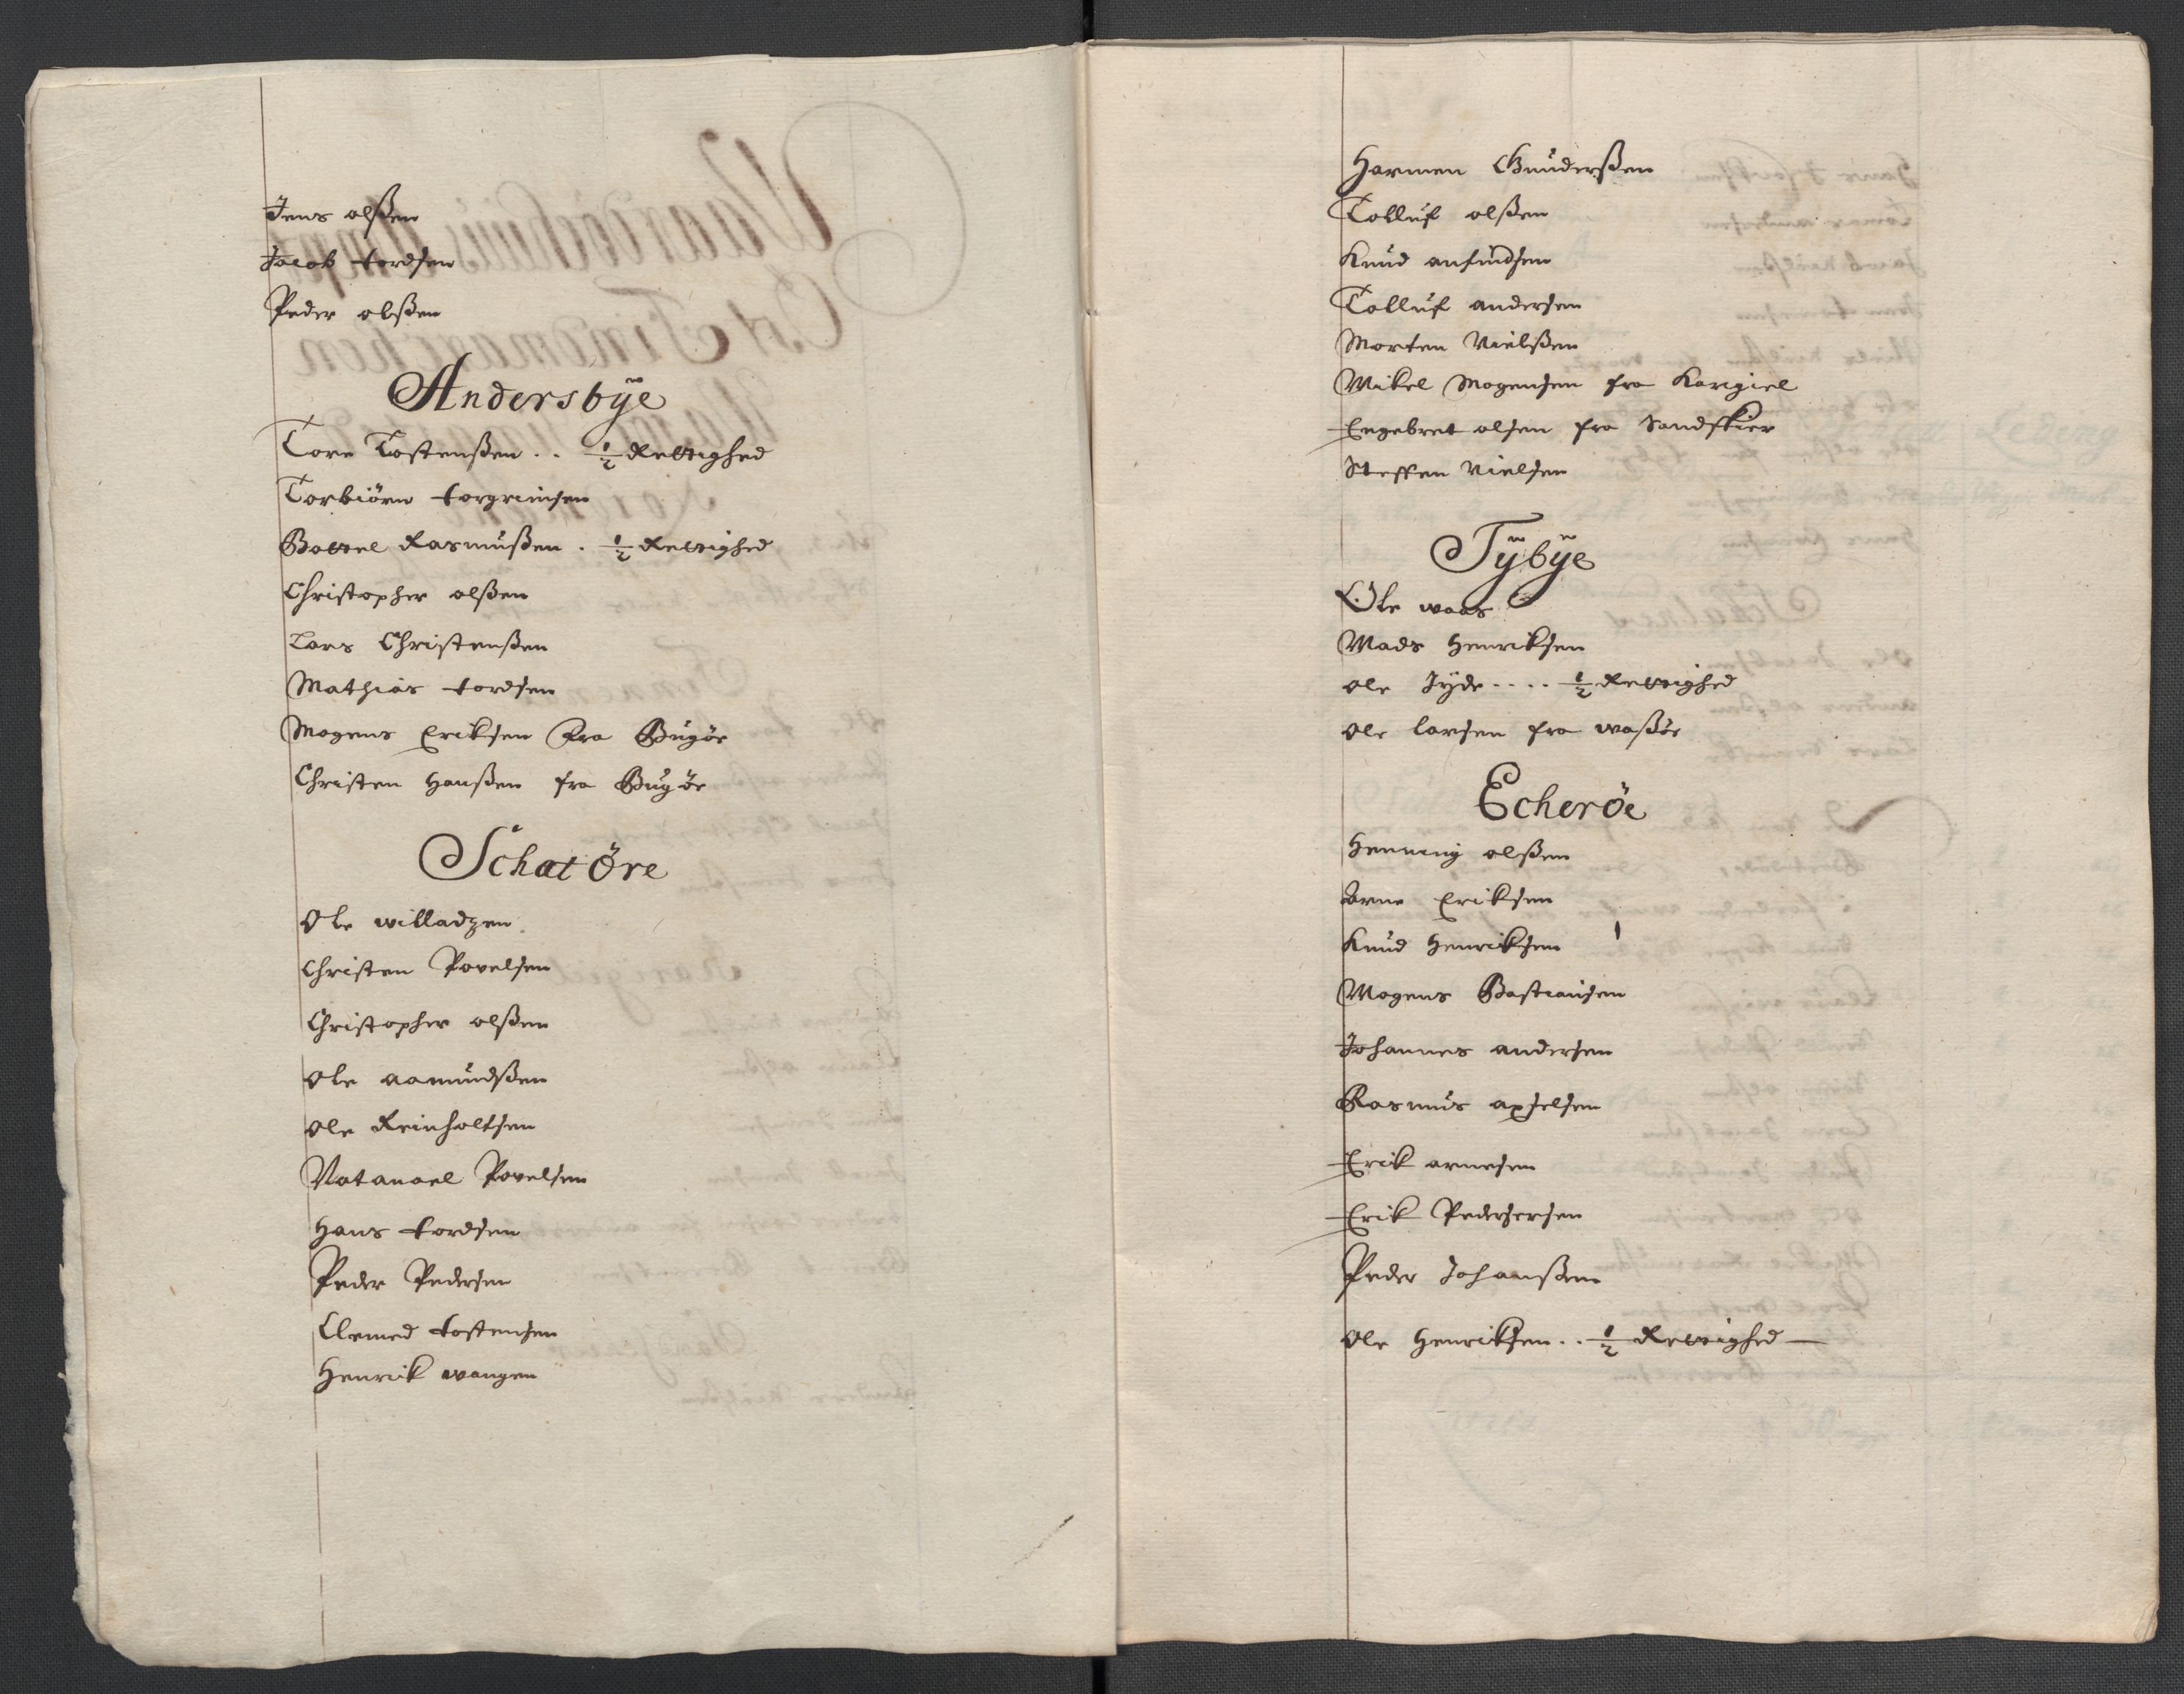 Jens olßen
Jacob tordsen
Peder olßen
Andersbÿe
Tore Tostenßen .. ½ Rettighed
Torbiörn torgrimsen
Bottel Rasmußen . ½ Rettighed
Christopher olßen
Lars Christenßen
Mathias tordsen
Mogens Eriksen fra Bugöe
Christen Hanßen fra Bugöe
Schatöre
Ole willadzen
Christen Povelsen
Christopher olßen
Ole aamundßen
Ole Reinholtsen
Natanael Povelsen
Hans tordsen
Peder Pedersen
Clemed tostensen
Henrik wangen
Harmen Gunderßen
Tolluf olßen
Knud anfindsen
Tolluf andersen
Morten Nielßen
Mikel Mogensen fra Kargiel
Engebret olsen fra Sandskier
Steffen Nielsen
Tÿbÿe
Ole waas
Mads Henriksen
Ole Jÿde .... ½ Rettighed
Ole larsen fra waßöe
Echeröe
Henning olßen
Arne Eriksen
Knud Henriksen
Mogens Bastiansen
Johannes andersen
Rasmus axselsen
Erik arnesen
Erik Pedersersen
Peder Johanßen
Ole Henriksen .. ½ Rettighed